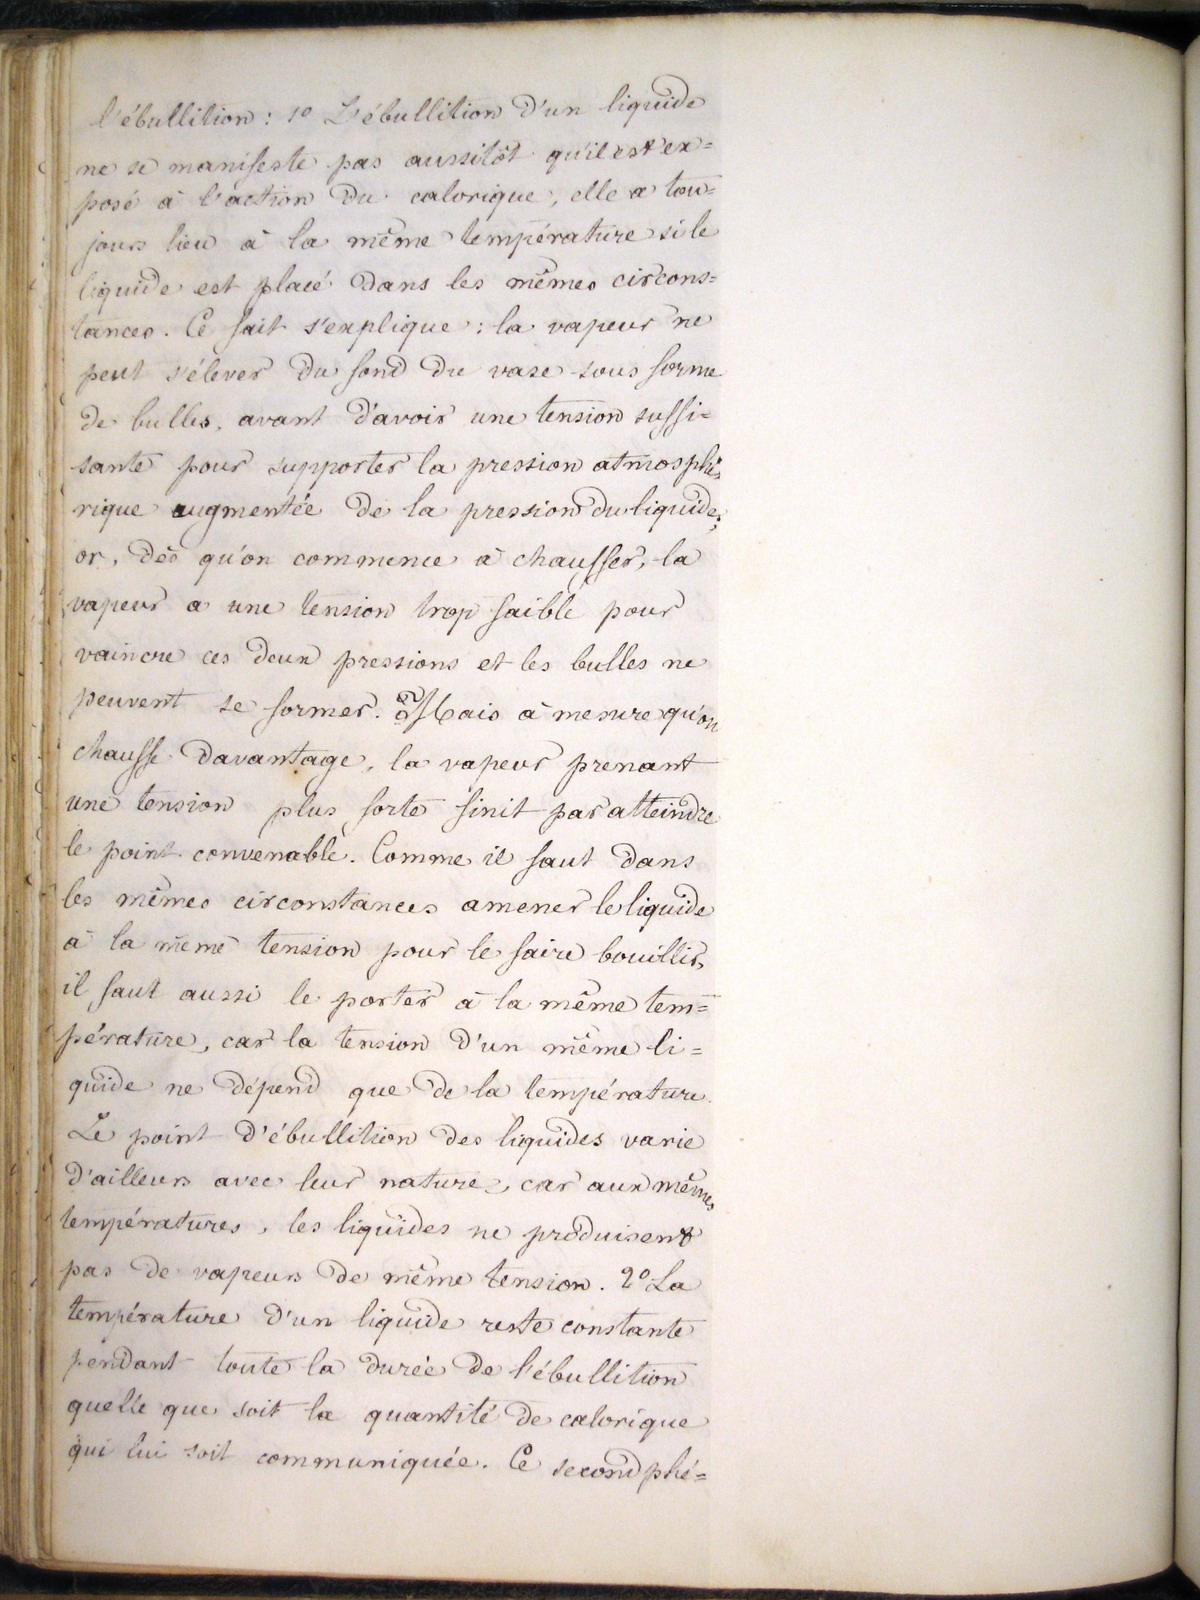 l'ébullition : 1º L'ébullition d'un liquide
ne se manifeste pas aussitôt qu'il est ex=
posé à l'action du calorique, elle a tou=
jours lieu à la même température si le
liquide est placé dans les mêmes circons=
tances. Ce fait s'explique : la vapeur ne
peut s'élever du fond du vase sous forme
de bulles, avant d'avoir une tension suffi=
sante pour supporter la pression atmosphé=
rique augmentée de la pression du liquide;
or, dès qu'on commence à chauffer, la
vapeur a une tension trop faible pour
vaincre ces deux pressions et les bulles ne
peuvent se former. Mais à mesure qu'on
chauffe davantage, la vapeur prenant
une tension plus forte finit par atteindre
le point convenable. Comme il faut dans
les mêmes circonstances amener le liquide
à la même tension pour le faire bouillir,
il faut aussi le porter à la même tem=
pérature, car la tension d'un même li=
quide ne dépend que de la température.
Le point d'ébullition des liquides varie
d'ailleurs avec leur nature, car aux mêmes
températures, les liquides ne produisent
pas de vapeurs de même tension. 2º La
température d'un liquide reste constante
pendant toute la durée de l'ébullition
quelle que soit la quantité de calorique
qui lui soit communiquée. Ce second phé=